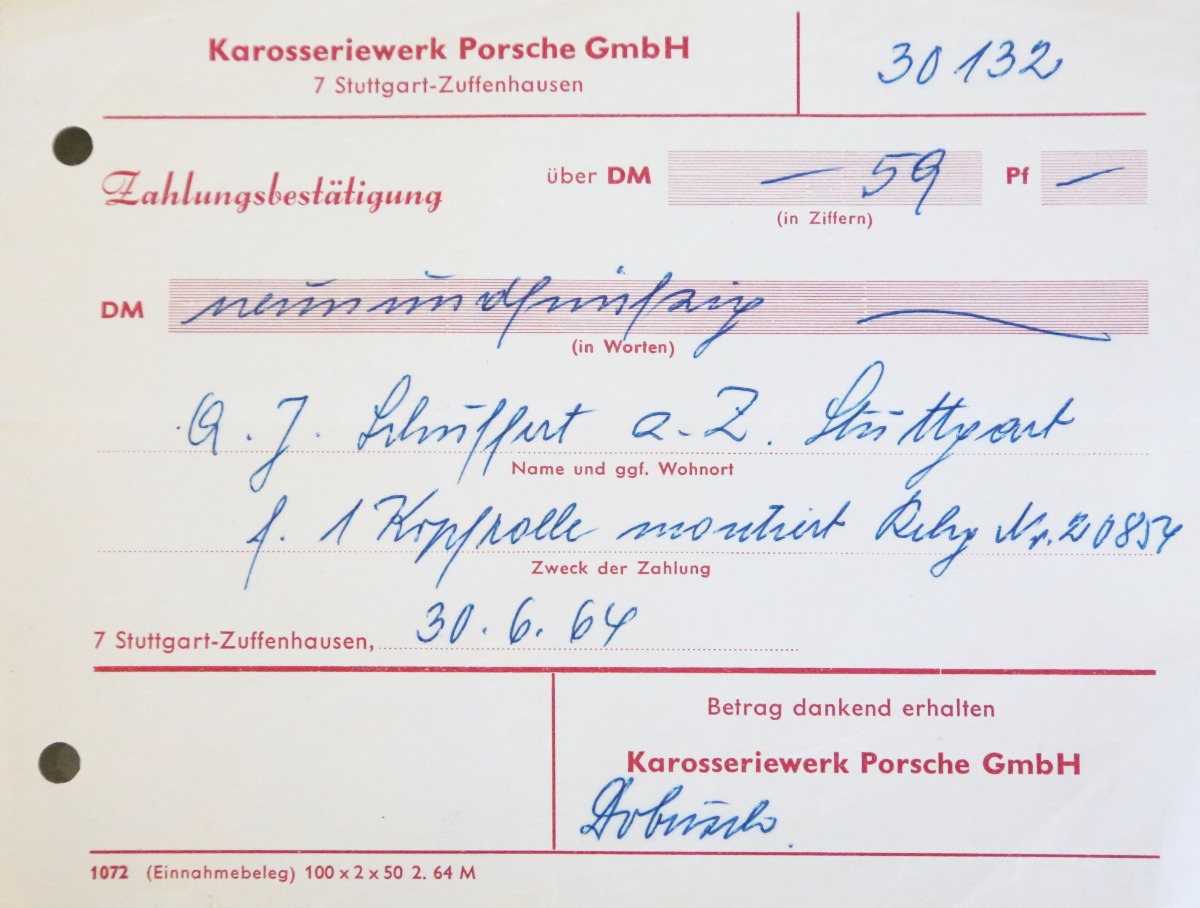 Karosseriewerk Porsche GmbH
7 Stuttgart-Zuffenhausen
30132
Zahlungsbestätigung
über DM — 59 Pf —
(in Ziffern)
DM neunundfünfzig
(in Worten)
A. J. Schuffert a. Z. Stuttgart
Name und ggf. Wohnort
f. 1 Kopfrolle montiert Nr. 20854
Zweck der Zahlung
7 Stuttgart-Zuffenhausen, 30. 6. 64
Betrag dankend erhalten
Karosseriewerk Porsche GmbH
1072 (Einnahmebeleg) 100 x 2 x 50 2. 64 M